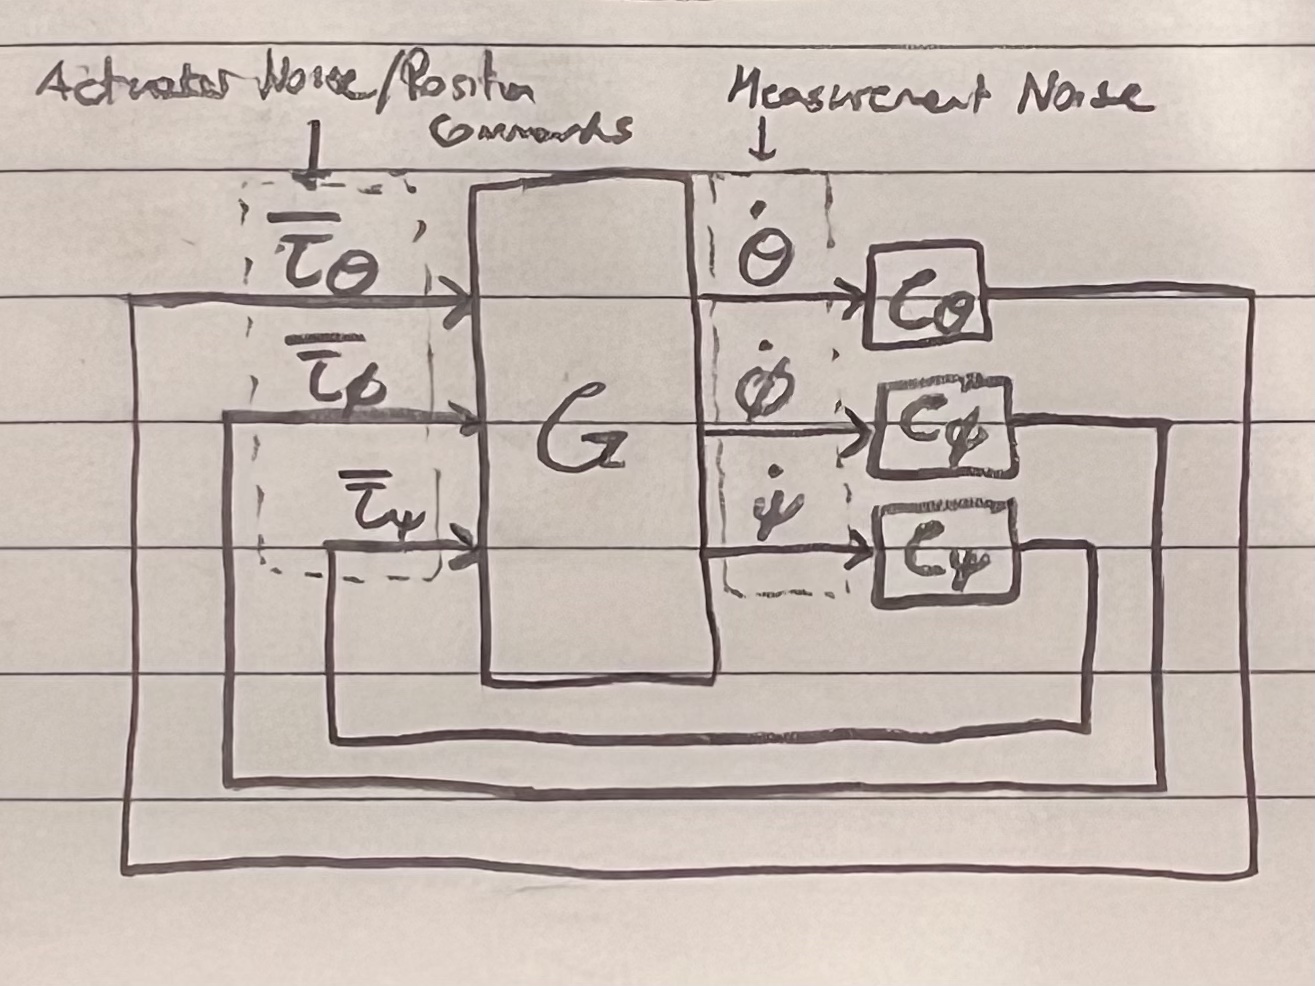 Actuator Noise/Position
Commands
Measurement Noise
τ̅θ
θ̇
Cθ
τ̅ϕ
ϕ̇
Cϕ
G
τ̅ψ
ψ̇
Cψ